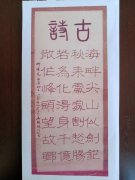 古詩
海畔尖山似劍鋩
秋來處處割愁腸
若為化得身千億
散作峰頭望故鄉